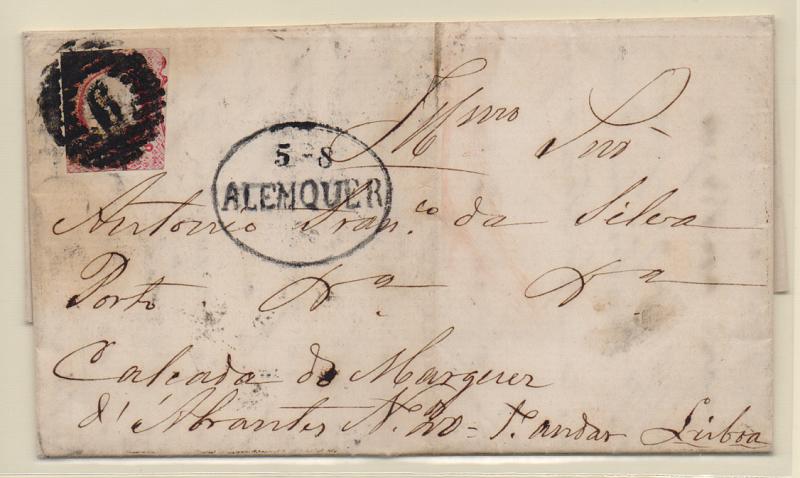 6
5-8
ALEMQUER
Illmo Snr
Antonio Fran.co da Silva
Porto &a &a
Calçada do Marquez
d'Abrantes N.º 20 = 1.º andar Lisboa